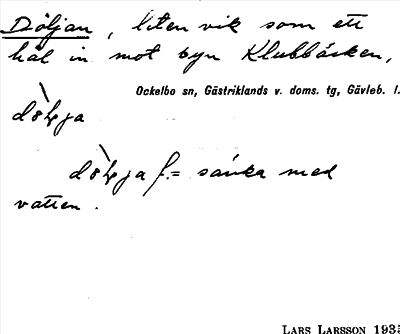 Döljan, liten vik som ett
hål in mot byn Klubbäcken,
Ockelbo sn, Gästriklands v. doms. tg, Gävleb. l.
dö̀ɫja
dö̀ɫja f. = sänka med
vatten.
LARS LARSSON 1935